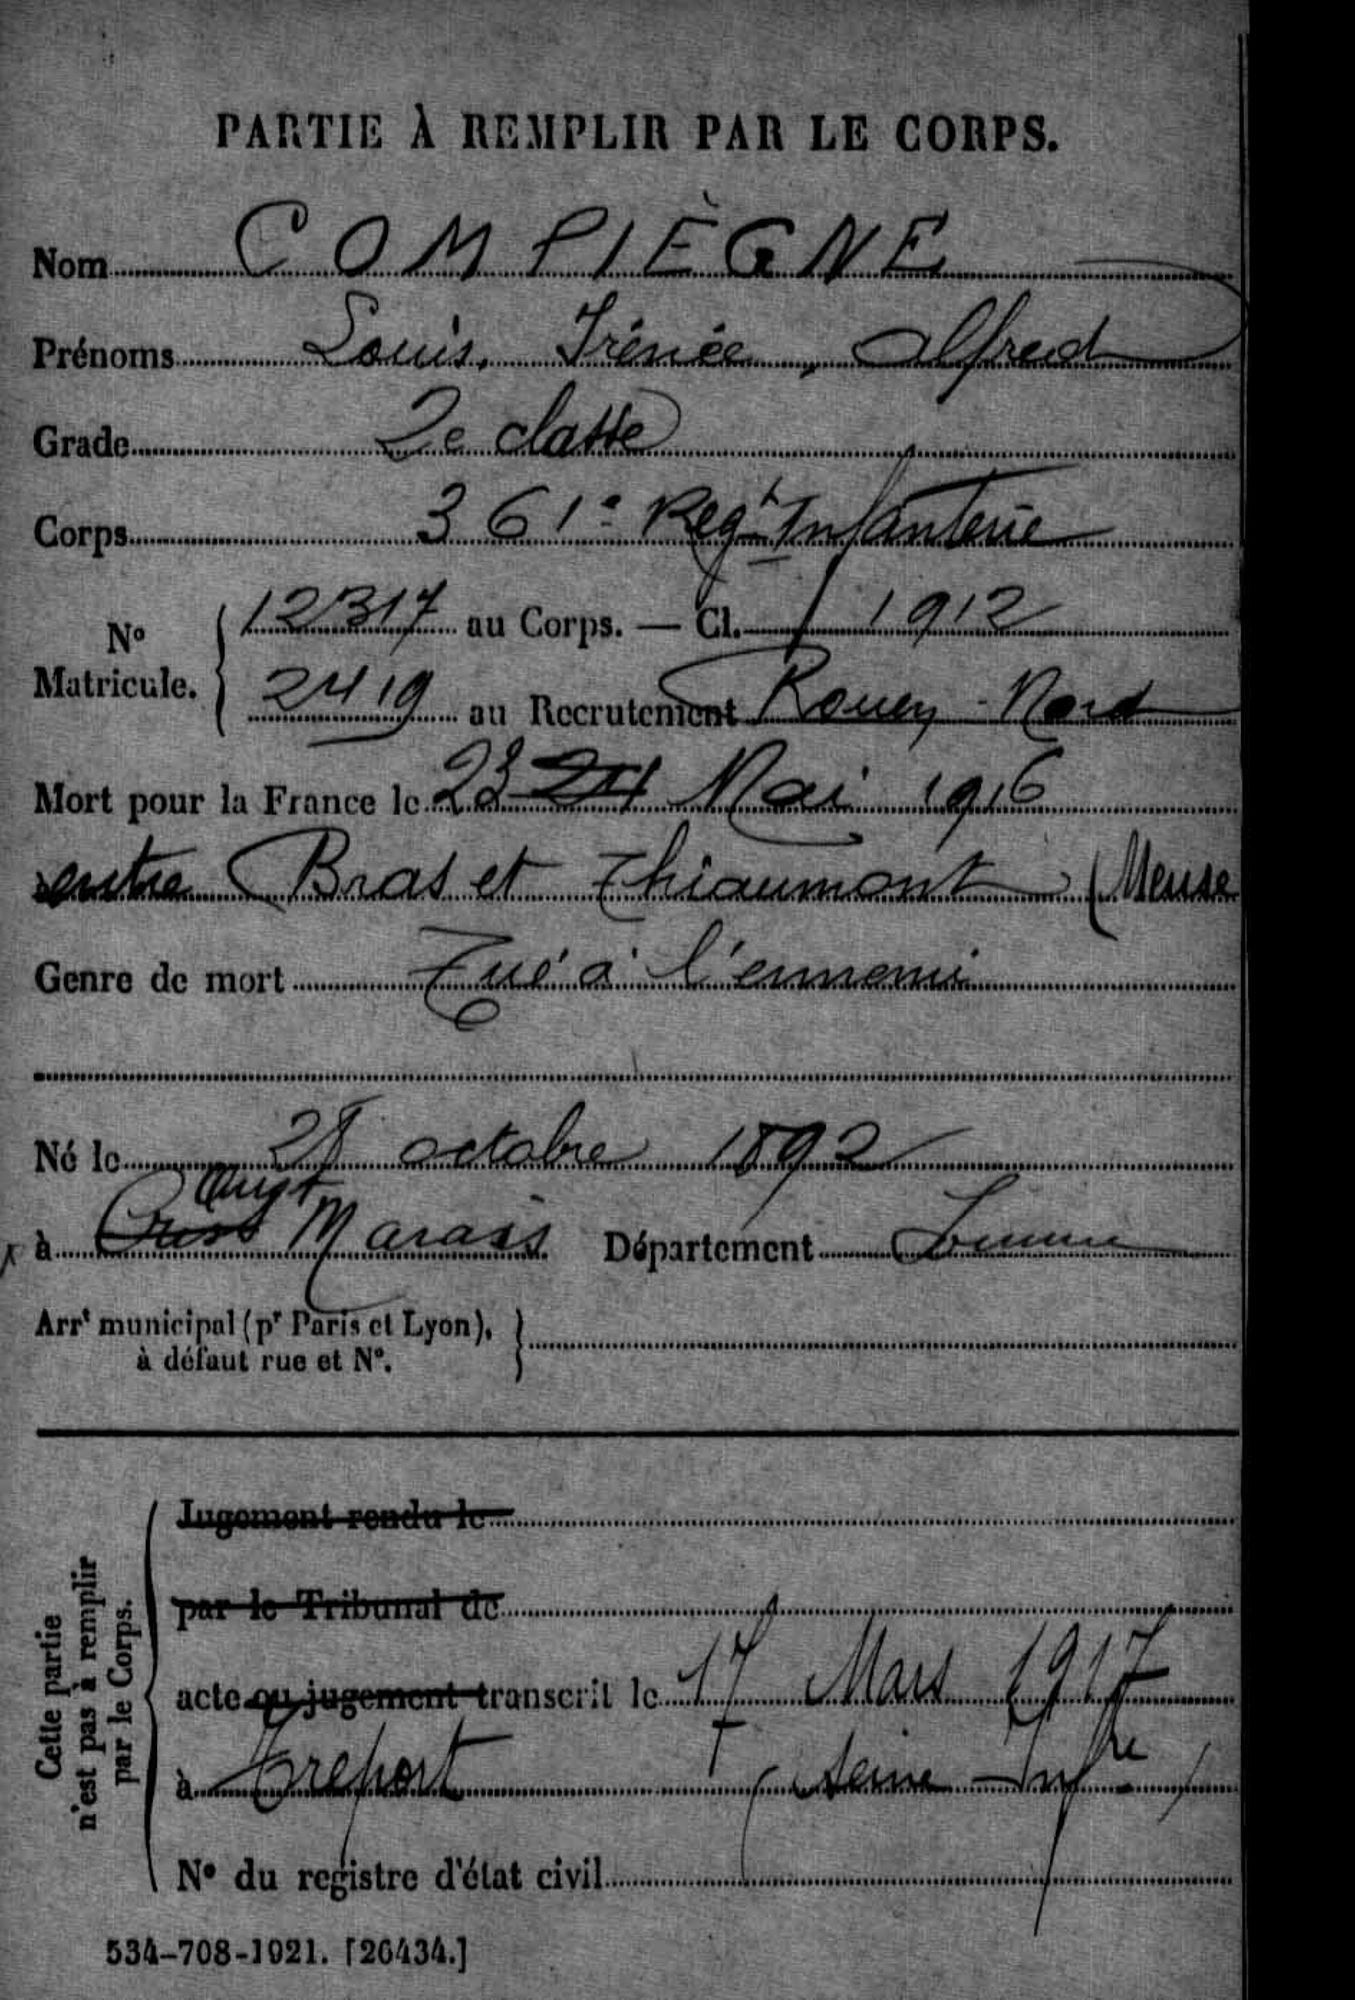 PARTIE À REMPLIR PAR LE CORPS.
Nom COMPIÈGNE
Prénoms Louis, Irénée, Alfred
Grade 2e classe
Corps 361e Regt Infanterie
No Matricule. 12317 au Corps. — Cl. 1912
2419 au Recrutement Rouen-Nord
Mort pour la France le 23 24 Mai 1916
entre Bras et Thiaumont (Meuse
Genre de mort Tué à l'ennemi
Né le 28 octobre 1892
à Marais Département Somme
Arrt municipal (pr Paris et Lyon), à défaut rue et No.
Cette partie n'est pas à remplir par le Corps.
Jugement rendu le
par le Tribunal de
acte ou jugement transcrit le 17 Mars 1917
à Tréport (Seine-Infre)
No du registre d'état civil
534-708-1921. [26434.]